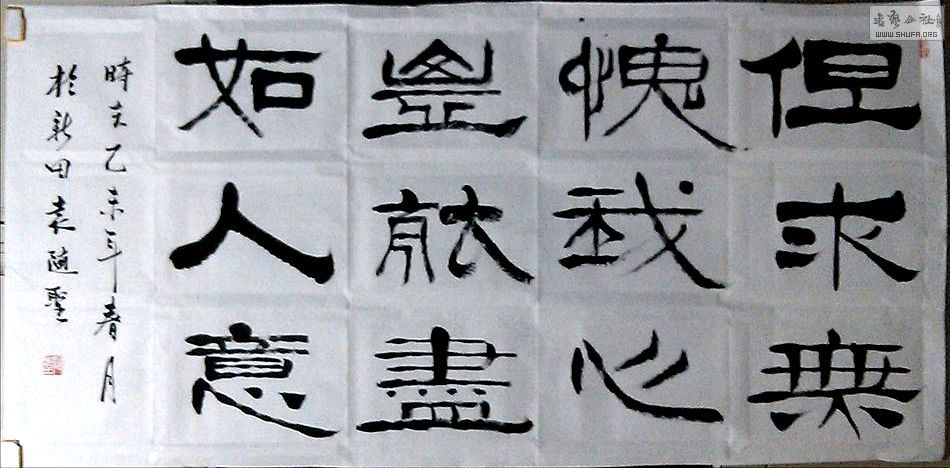 但求無
愧我心
豈能盡
如人意
時在乙未年春月
於新田袁隨聖
書藝公社
WWW.SHUFA.ORG